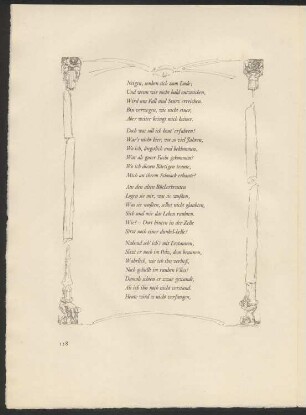 Neigen, senken sich zum Ende;
Und wenn wir nicht bald entweichen,
Wird uns Fall und Sturz erreichen.
Bin verwegen, wie nicht einer,
Aber weiter bringt mich keiner.
Doch was soll ich heut erfahren!
War's nicht hier, vor so viel Jahren,
Wo ich, ängstlich und beklommen,
War als guter Fuchs gekommen?
Wo ich diesen Bärtigen traute,
Mich an ihrem Schnack erbaute?
Aus den alten Bücherkrusten
Logen sie mir, was sie wußten,
Was sie wußten, selbst nicht glaubten,
Sich und mir das Leben raubten.
Wie? — Dort hinten in der Zelle
Sitzt noch einer dunkel-helle!
Nahend seh' ich's mit Erstaunen,
Sitzt er noch im Pelz, dem braunen,
Wahrlich, wie ich ihn verließ,
Noch gehüllt im rauhen Vlies!
Damals schien er zwar gewandt,
Als ich ihn noch nicht verstand.
Heute wird es nicht verfangen,
118